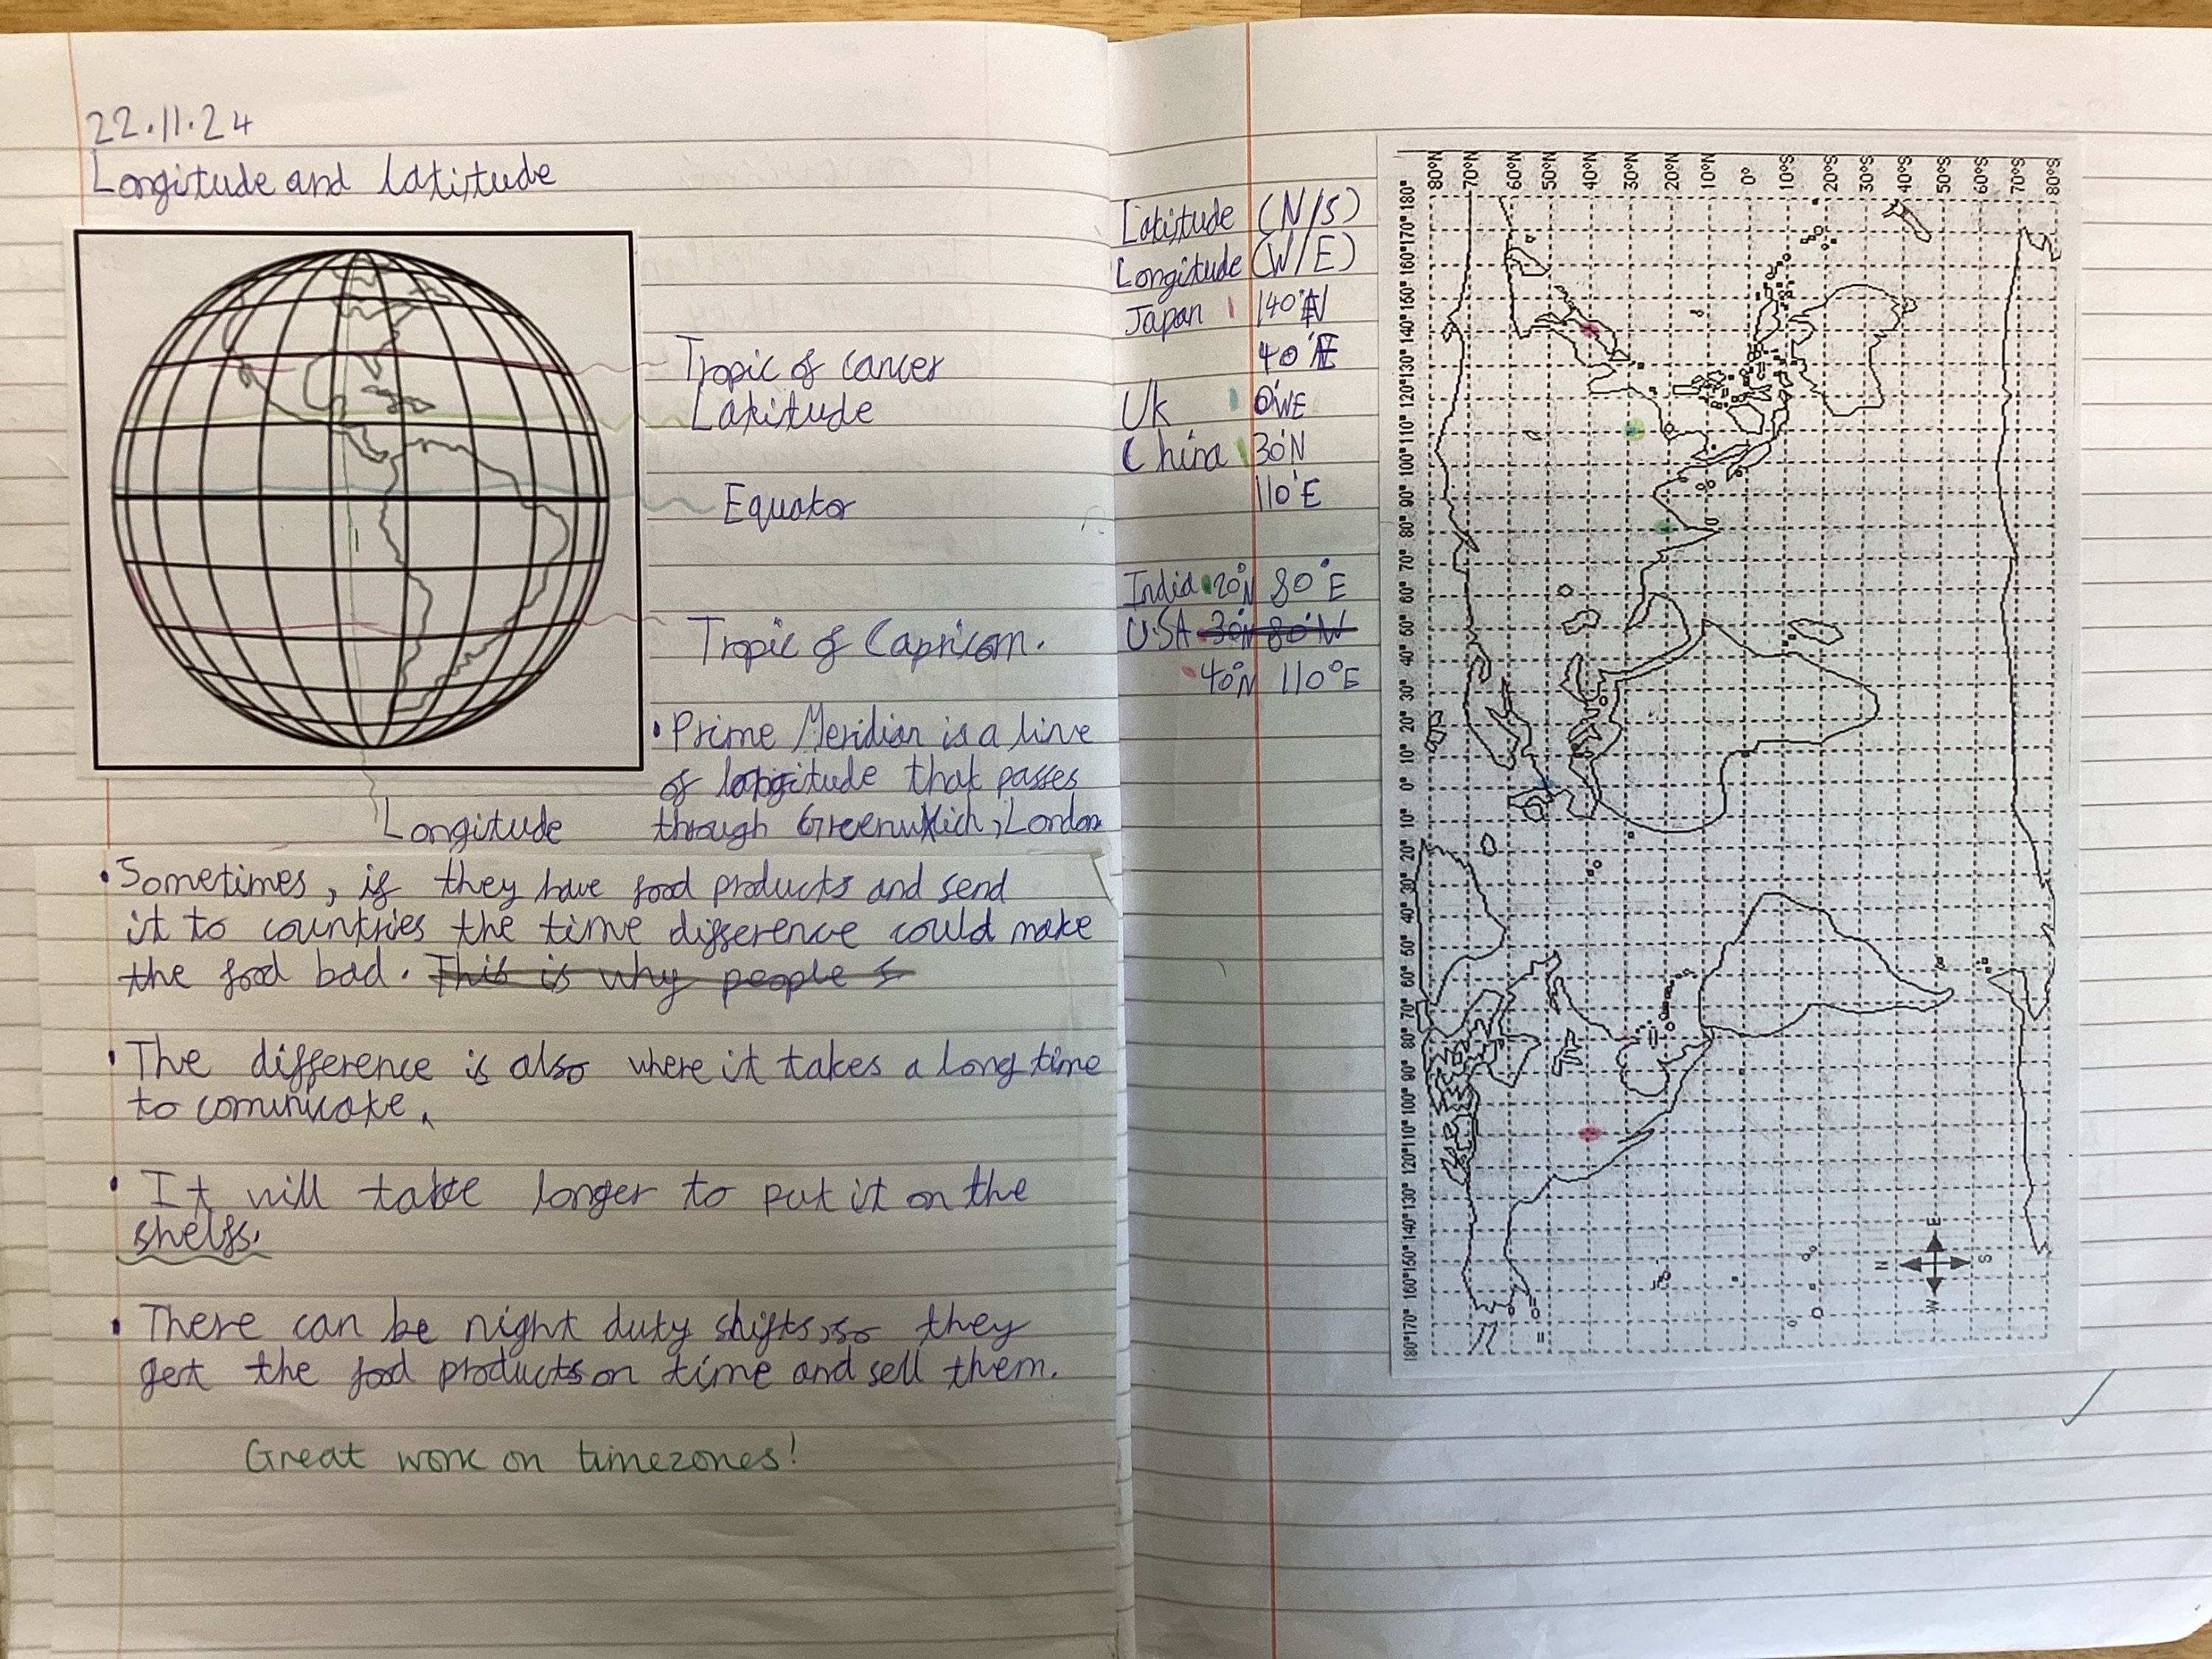 22.11.24
Longitude and latitude
Tropic of cancer
Latitude
Equator
Tropic of Capricorn.
• Prime Meridian is a line
of longitude that passes
through Greenwich, London
Longitude
• Sometimes, if they have food products and send
it to countries the time difference could make
the food bad. This is why people s
• The difference is also where it takes a long time
to comunicate.
• It will take longer to put it on the
shelfs.
• There can be night duty shifts, so they
get the food products on time and sell them.
Great work on timezones!
Latitude (N/S)
Longitude (W/E)
Japan 140°N
40°E
Uk 0°WE
China 30°N
110°E
India 20°N 80°E
U.SA 30°N 80°W
40°N 110°E
80°N 70°N 60°N 50°N 40°N 30°N 20°N 10°N 0° 10°S 20°S 30°S 40°S 50°S 60°S 70°S 80°S
180° 170° 160° 150° 140° 130° 120° 110° 100° 90° 80° 70° 60° 50° 40° 30° 20° 10° 0° 10° 20° 30° 40° 50° 60° 70° 80° 90° 100° 110° 120° 130° 140° 150° 160° 170° 180°
N
W E
S